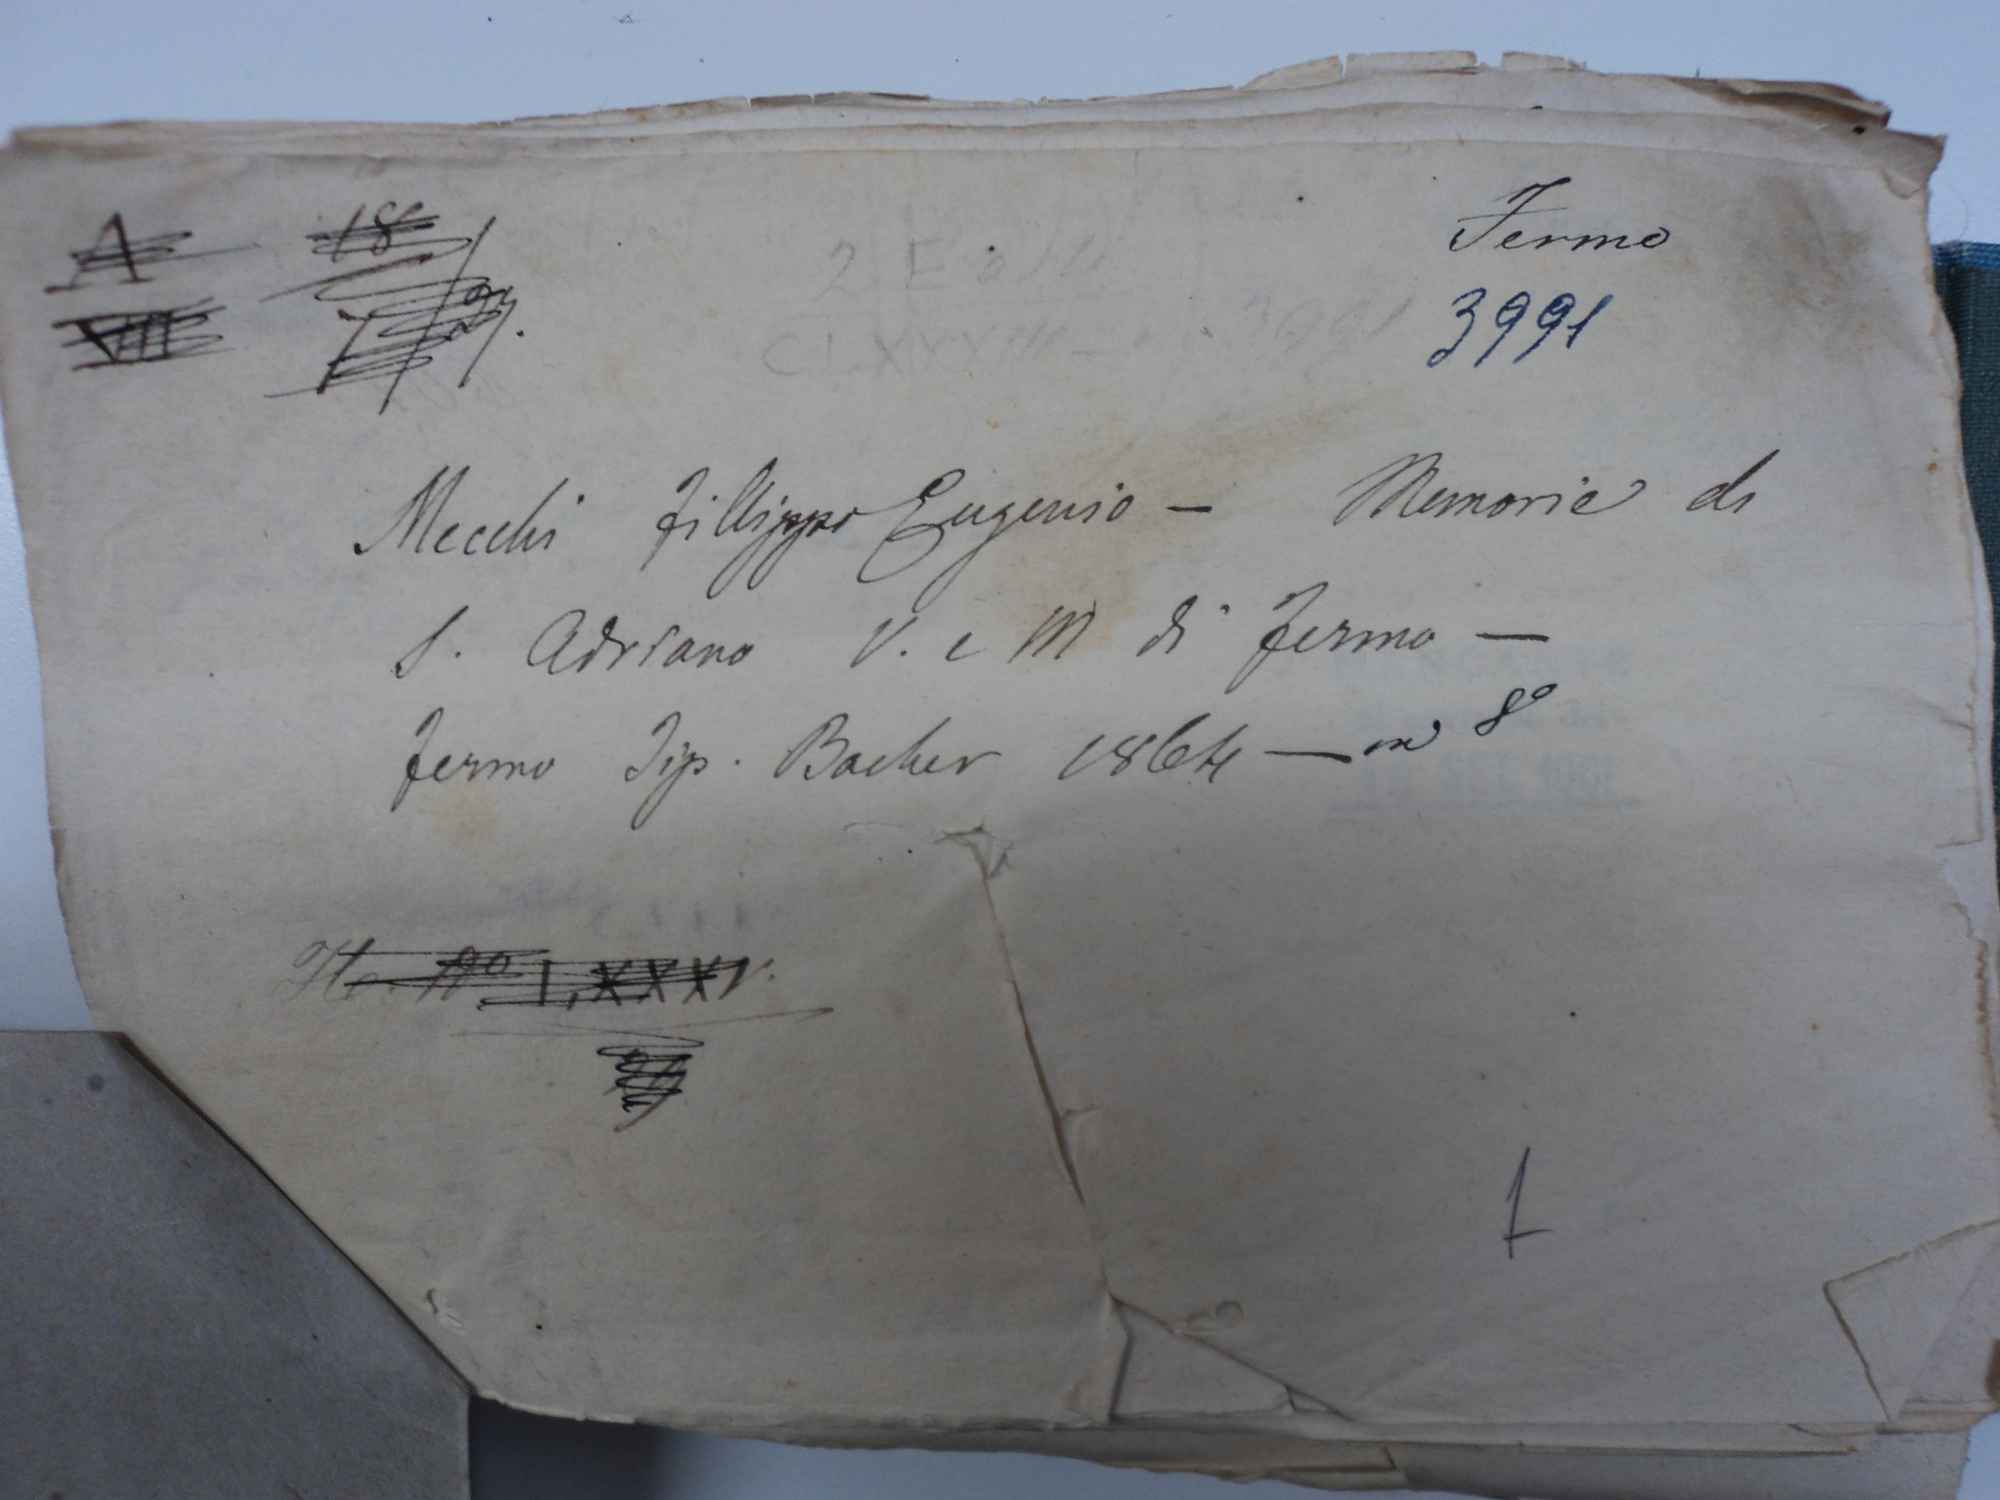 A 18
XVIII
Fermo
3991
Mecchi Fillippo Eugenio — Memorie di
S. Adriano V. e M di Fermo —
Fermo Tip. Bacher 1864 — in 8°
LXXXV.
1